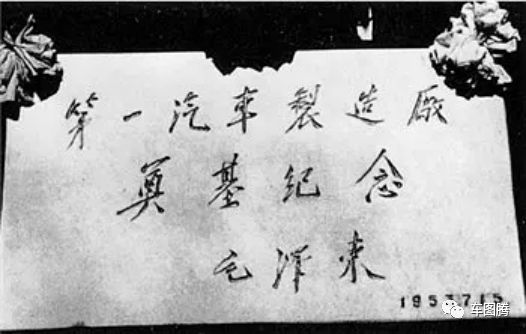 第一汽車製造廠
奠基紀念
毛泽東
1953 7 15
车图腾